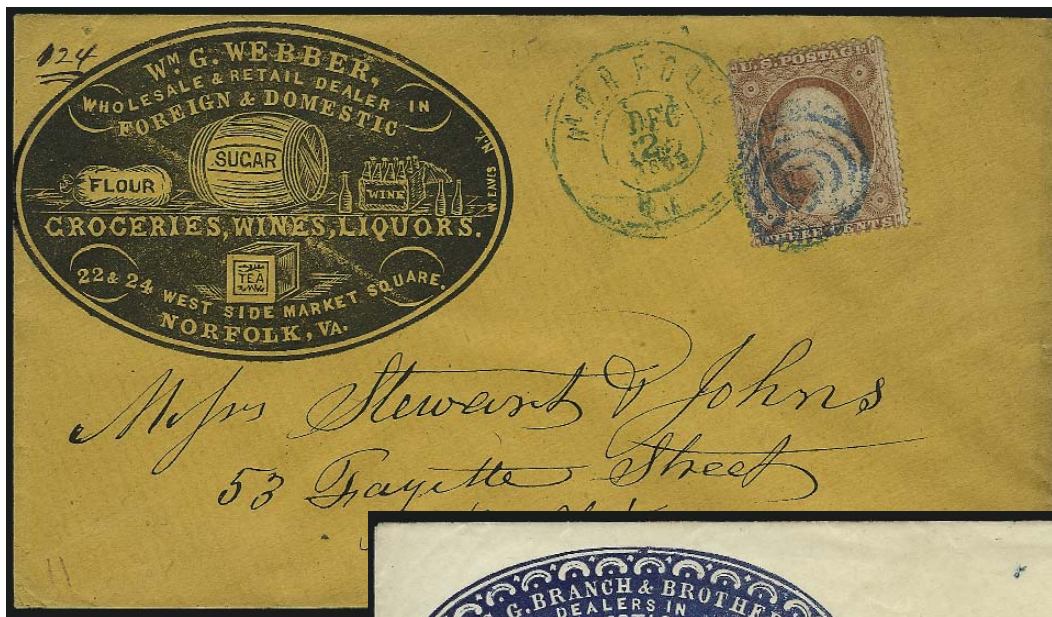 124
WM. G. WEBBER,
WHOLESALE & RETAIL DEALER IN
FOREIGN & DOMESTIC
SUGAR
FLOUR
WINE
W. EAVES N.Y.
GROCERIES, WINES, LIQUORS.
TEA
22 & 24 WEST SIDE MARKET SQUARE.
NORFOLK, VA.
NORFOLK
DEC
2
U.S. POSTAGE
THREE CENTS
Messrs Stewart & Johns
53 Fayette Street
11
G. BRANCH & BROTHE
DEALERS IN